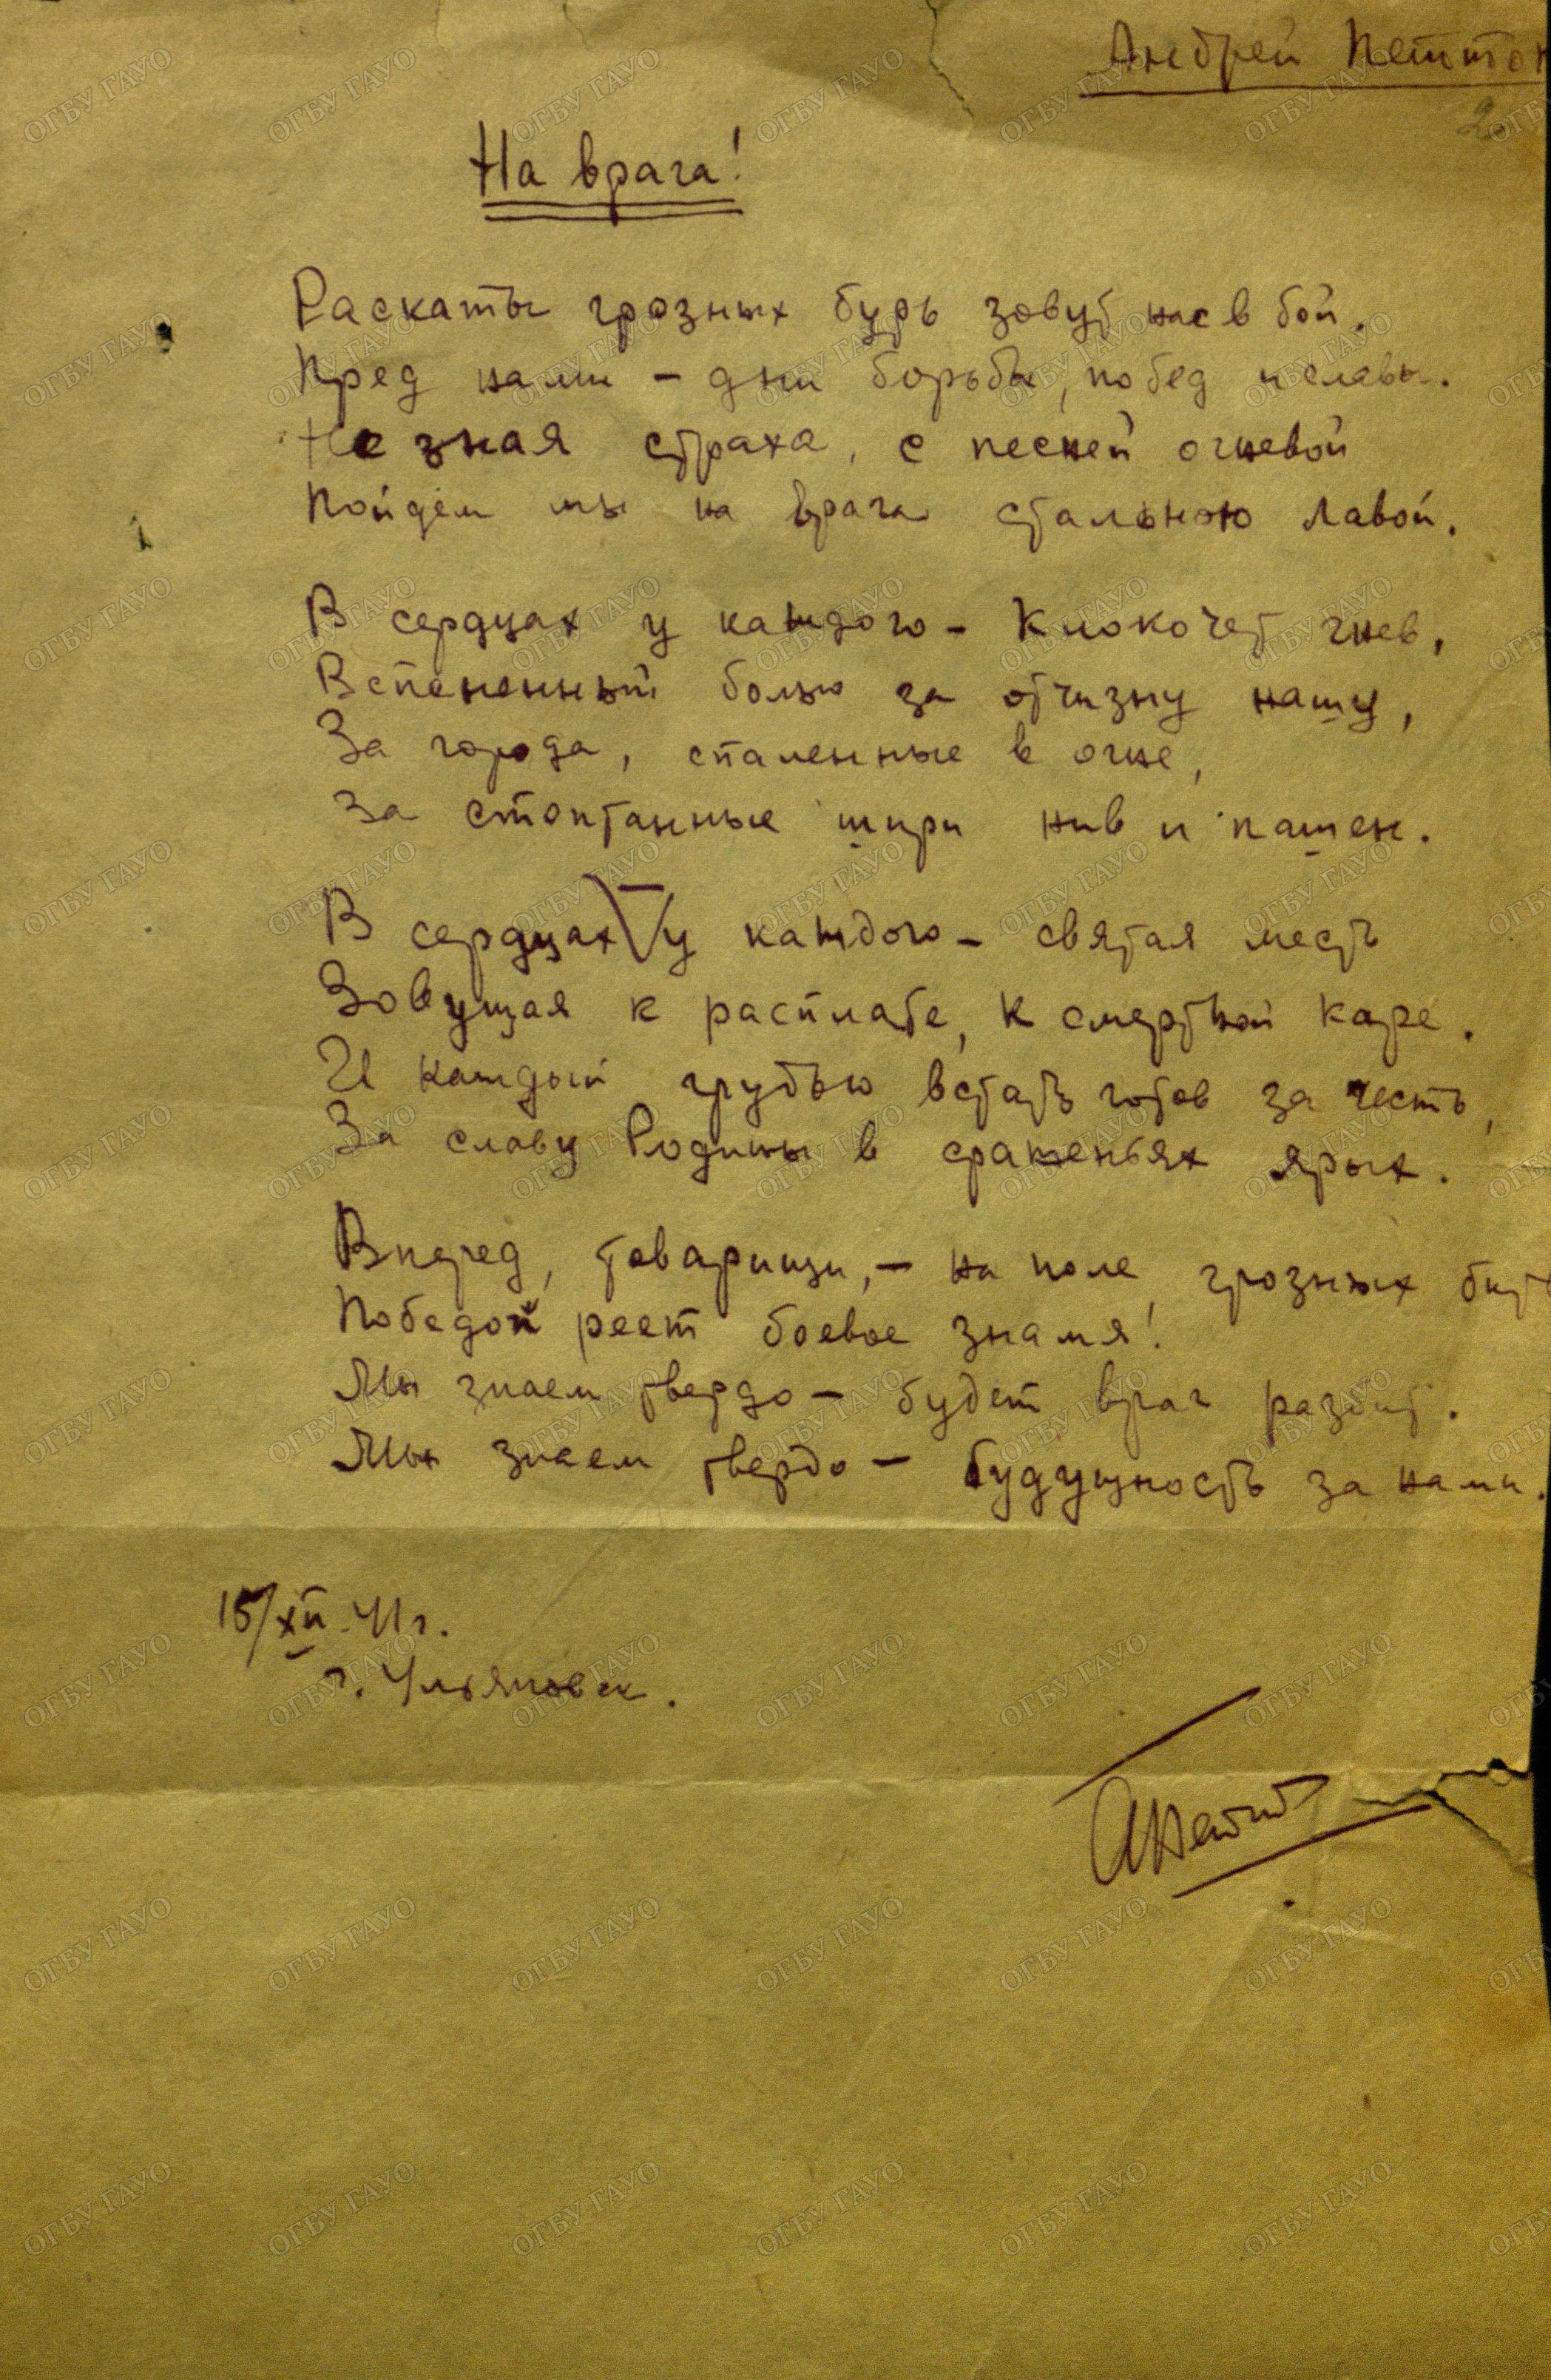 Андрей Петток
2
На врага!
Раскаты грозных бурь зовут нас в бой.
Пред нами – дни борьбы, побед и славы.
Не зная страха, с песней огневой
Пойдем мы на врага стальною лавой.
В сердцах у каждого – клокочет гнев,
Вспененный болью за отчизну нашу,
За города, спаленные в огне,
За стоптанные шири нив и пашен.
В сердцах у каждого – святая месть
Зовущая к расплате, к смертной каре.
И каждый грудью встать готов за честь,
За славу Родины в сраженьях ярых.
Вперед, товарищи, – на поле грозных бит
Победой реет боевое знамя!
Мы знаем твердо – будет враг разбит.
Мы знаем твердо – будущность за нами.
15/XII-41 г.
г. Ульяновск.
ОГБУ ГАУО